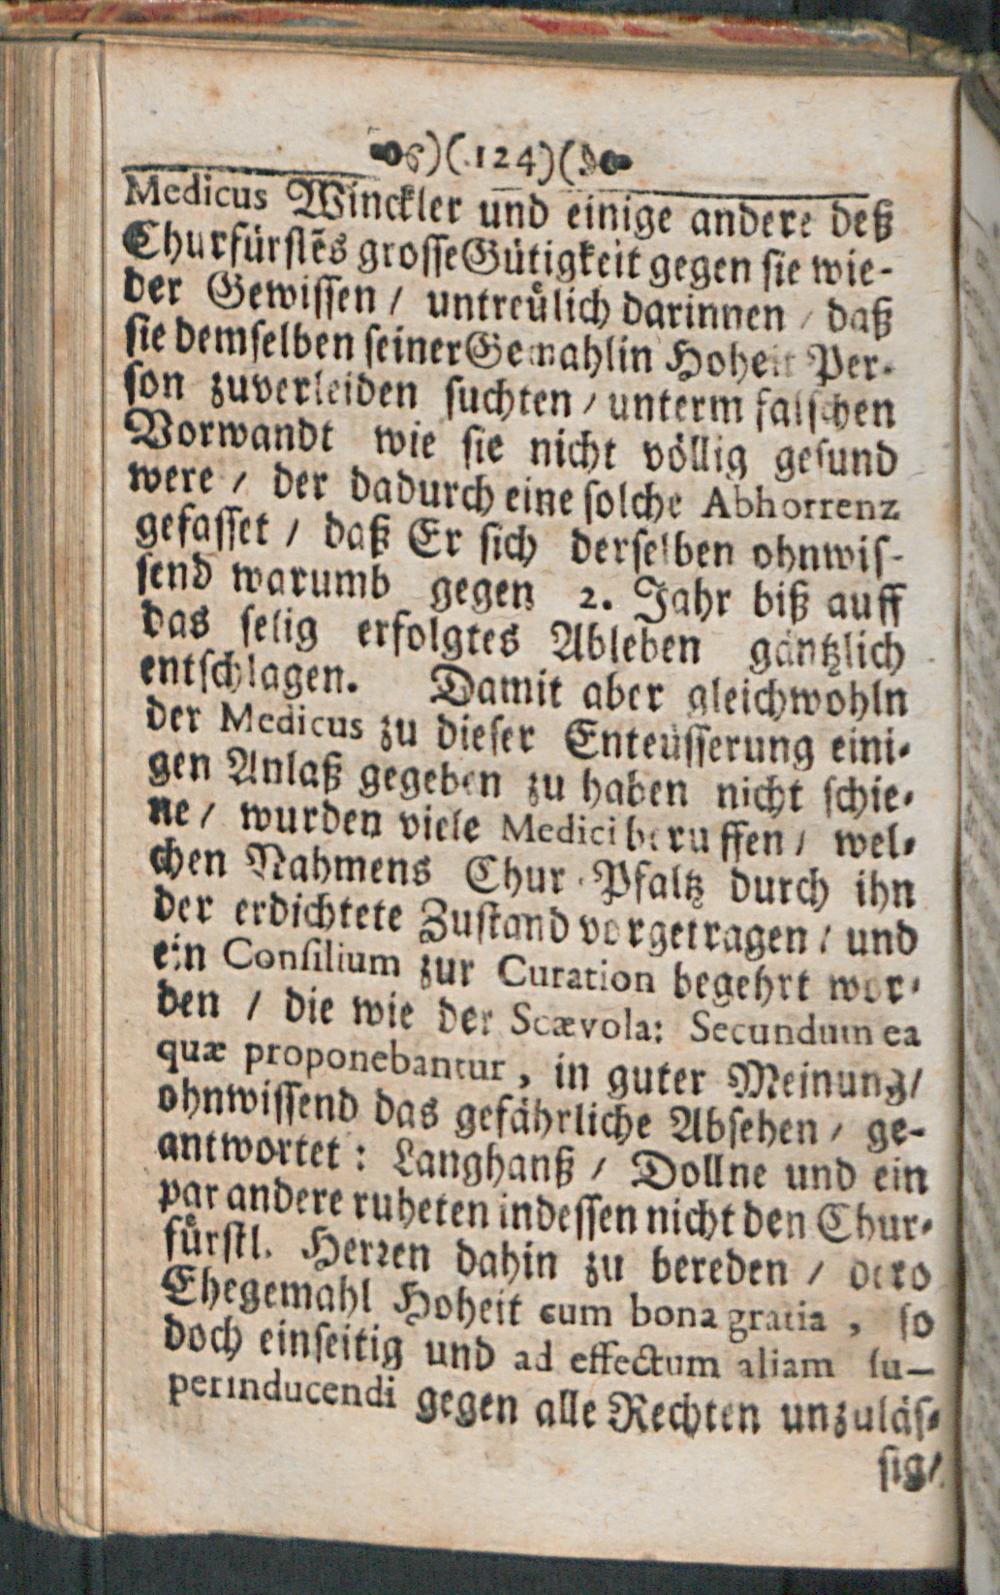 )(124)(
Medicus Winckler und einige andere deß
Churfürstẽs grosse Gütigkeit gegen sie wie-
der Gewissen / untreůlich darinnen / daß
sie demselben seiner Gemahlin Hoheit Per-
son zuverleiden suchten / unterm falschen
Vorwandt wie sie nicht völlig gesund
were / der dadurch eine solche Abhorrenz
gefasset / daß Er sich derselben ohnwis-
send warumb gegen 2. Jahr biß auff
das selig erfolgtes Ableben gäntzlich
entschlagen. Damit aber gleichwohln
der Medicus zu dieser Enteüsserung eini-
gen Anlaß gegeben zu haben nicht schie-
ne / wurden viele Medici beruffen / wel-
chen Nahmens Chur-Pfaltz durch ihn
der erdichtete Zustand vorgetragen / und
ein Consilium zur Curation begehrt wor-
den / die wie der Scævola: Secundum ea
quæ proponebantur, in guter Meinung /
ohnwissend das gefährliche Absehen / ge-
antwortet: Langhanß / Dollne und ein
par andere ruheten indessen nicht den Chur-
fůrstl. Herren dahin zu bereden / dero
Ehegemahl Hoheit cum bona gratia, so
doch einseitig und ad effectum aliam su-
perinducendi gegen alle Rechten unzuläs-
sig /